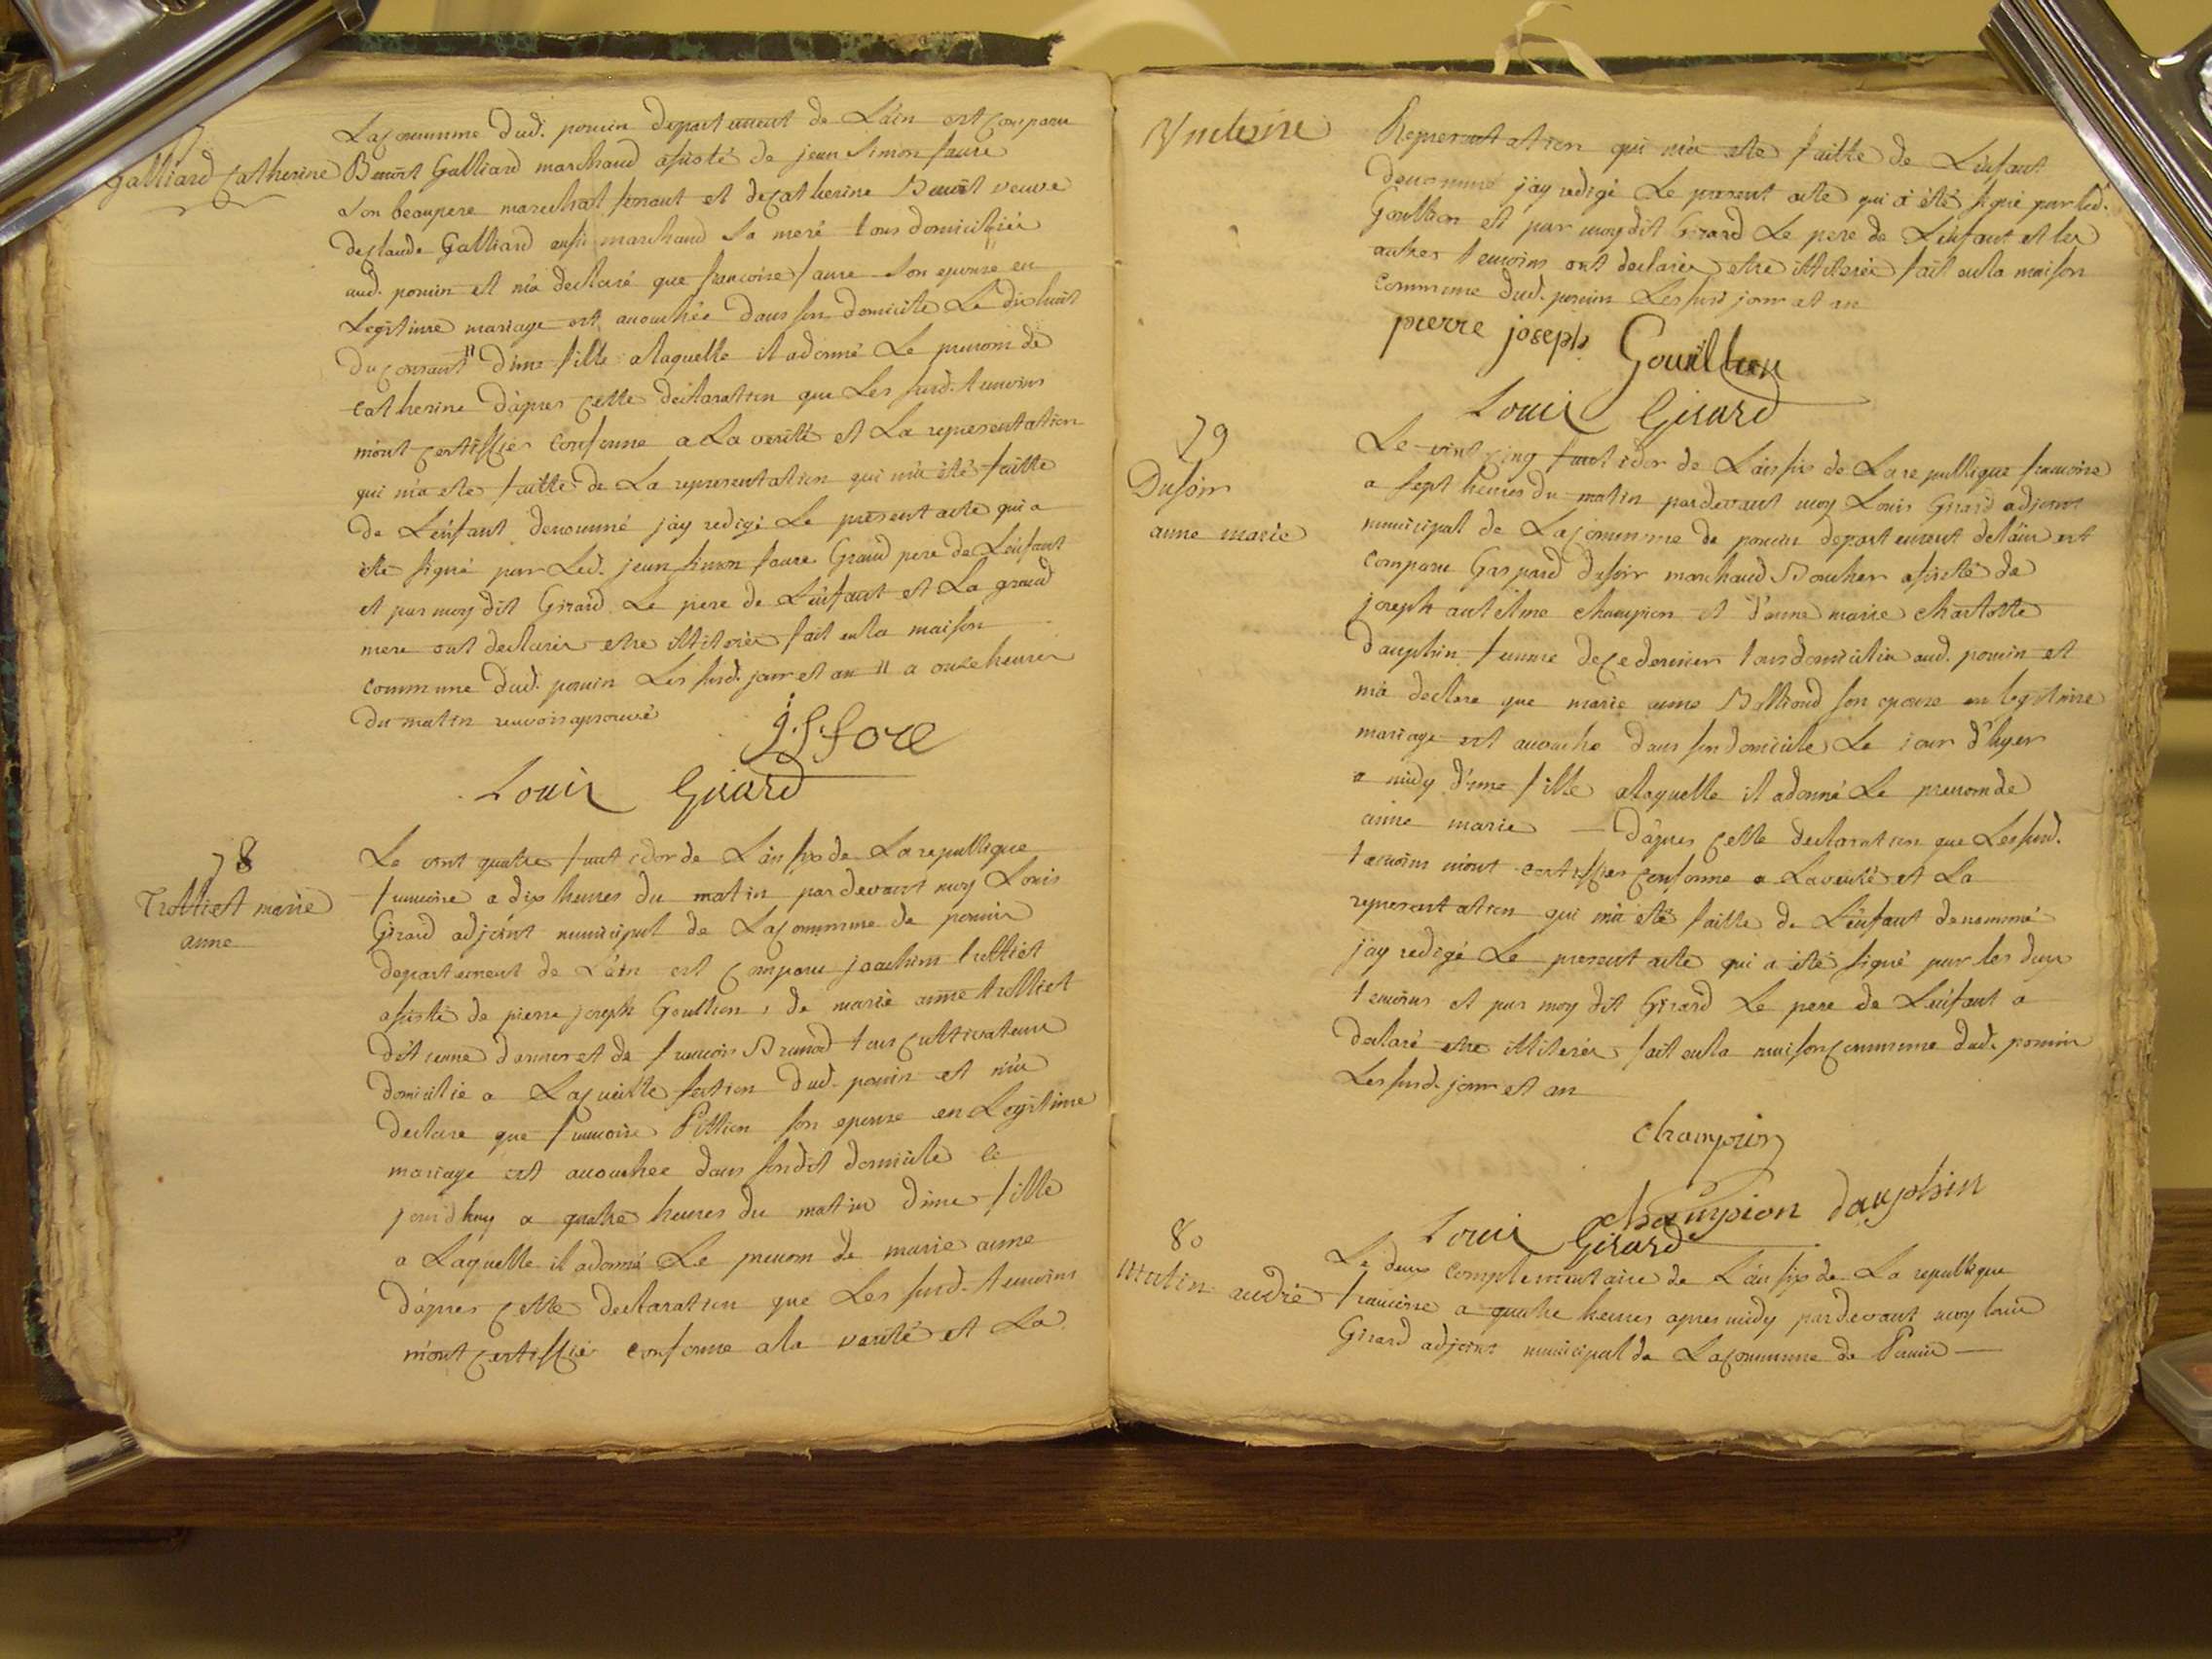 Galliard Catherine
Lacommune dud. poncin departement de Lain est comparu
Benoit Galliard marchand asisté de jean simon faure
son beaupere marechal ferrant et decatherine Benoit veuve
declaude Galliard ausi marchand sa mere tous domiciliés
aud. poncin et m'a declaré que francoise faure son epouse en
Legitime mariage est acouchée dans son domicile Le dixhuit
du courant d'une fille alaquelle il adonné Le prenom de
catherine d'apres cette declaration que Les susd. temoins
m'ont certiffiés conforme a La verité et La representation
qui m'a ete faitte de La representation qui m'a été faitte
de L'enfant denommé j'ay redigé Le present acte qui a
ete signé par Led. jean simon faure Grand pere de L'enfant
et par moy dit Girard Le pere de L'enfant et La grand
mere ont declarés etre illiterés fait enla maison
commune dud. poncin Les susd. jour et an 11 a onze heures
du matin renvois aprouvé
j. s. fore
Louis Girard
78
Trolliet marie
anne
Le vint quatre fructidor de L'an six de La republique
francoise a dix heures du matin pardevant moy Louis
Girard adjoint municipal de Lacommune de poncin
departement de L'ain est comparu joachim trolliet
asisté de pierre joseph Goullion, de marie anne trolliet
d'etienne et de francois Brunod tous cultivateurs
domicilié a Lacueille section dud. poncin et m'a
declare que francoise Pittion son epouse en Legitime
mariage est acouchée dans sondit domicile ce
jourdhuy a quatre heures du matin d'une fille
a Laquelle il adonné Le prenom de marie anne
d'apres cette declaration que Les susd. temoins
m'ont certiffié conforme ala verité et La
Representation qui m'a ete faitte de L'enfant
denommé j'ay redigé Le present acte qui a été signé par led.
Goullion et par moydit Girard Le pere de L'enfant et les
autres temoins ont declarés etre illiterés fait enla maison
commune dud. poncin Les susd jour et an
pierre joseph Gouillion
Louis Girard
79
Dufoir
anne marie
Le vint cinq fructidor de L'an six de La republique francoise
a sept heures du matin pardevant moy Louis Girard adjoint
municipal de Lacommune de poncin departement delain est
comparu Gaspard dufoir marchand Boucher asisté de
joseph antelme champion et d'anne marie charlotte
Dauphin femme dece dernier tous domicilié aud. poncin et
m'a declare que marie anne Balliond son epouse en legitime
mariage est acouche dans son domicile Le jour d'hyer
a midy d'une fille alaquelle il adonné Le prenom de
anne marie — D'apres cette declaration que Les susd.
temoins m'ont certiffiés conforme a Laverité et La
representation qui m'a été faitte de L'enfant denommé
j'ay redigé Le present acte qui a été signé par les deux
temoins et par moy dit Girard Le pere de L'enfant a
declaré etre illiteré fait enla maison commune dud. poncin
Les susd. jour et an
champion
champion dauphin
Louis Girard
80
andré
Le deux complementaire de L'an six de La republique
francoise a quatre heures apres midy pardevant moy louis
Girard adjoint municipal de Lacommune de Poncin —